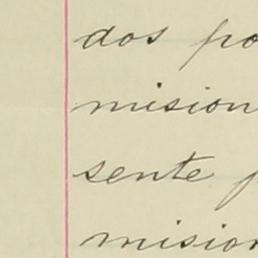 dos po
mision
sente p
mision